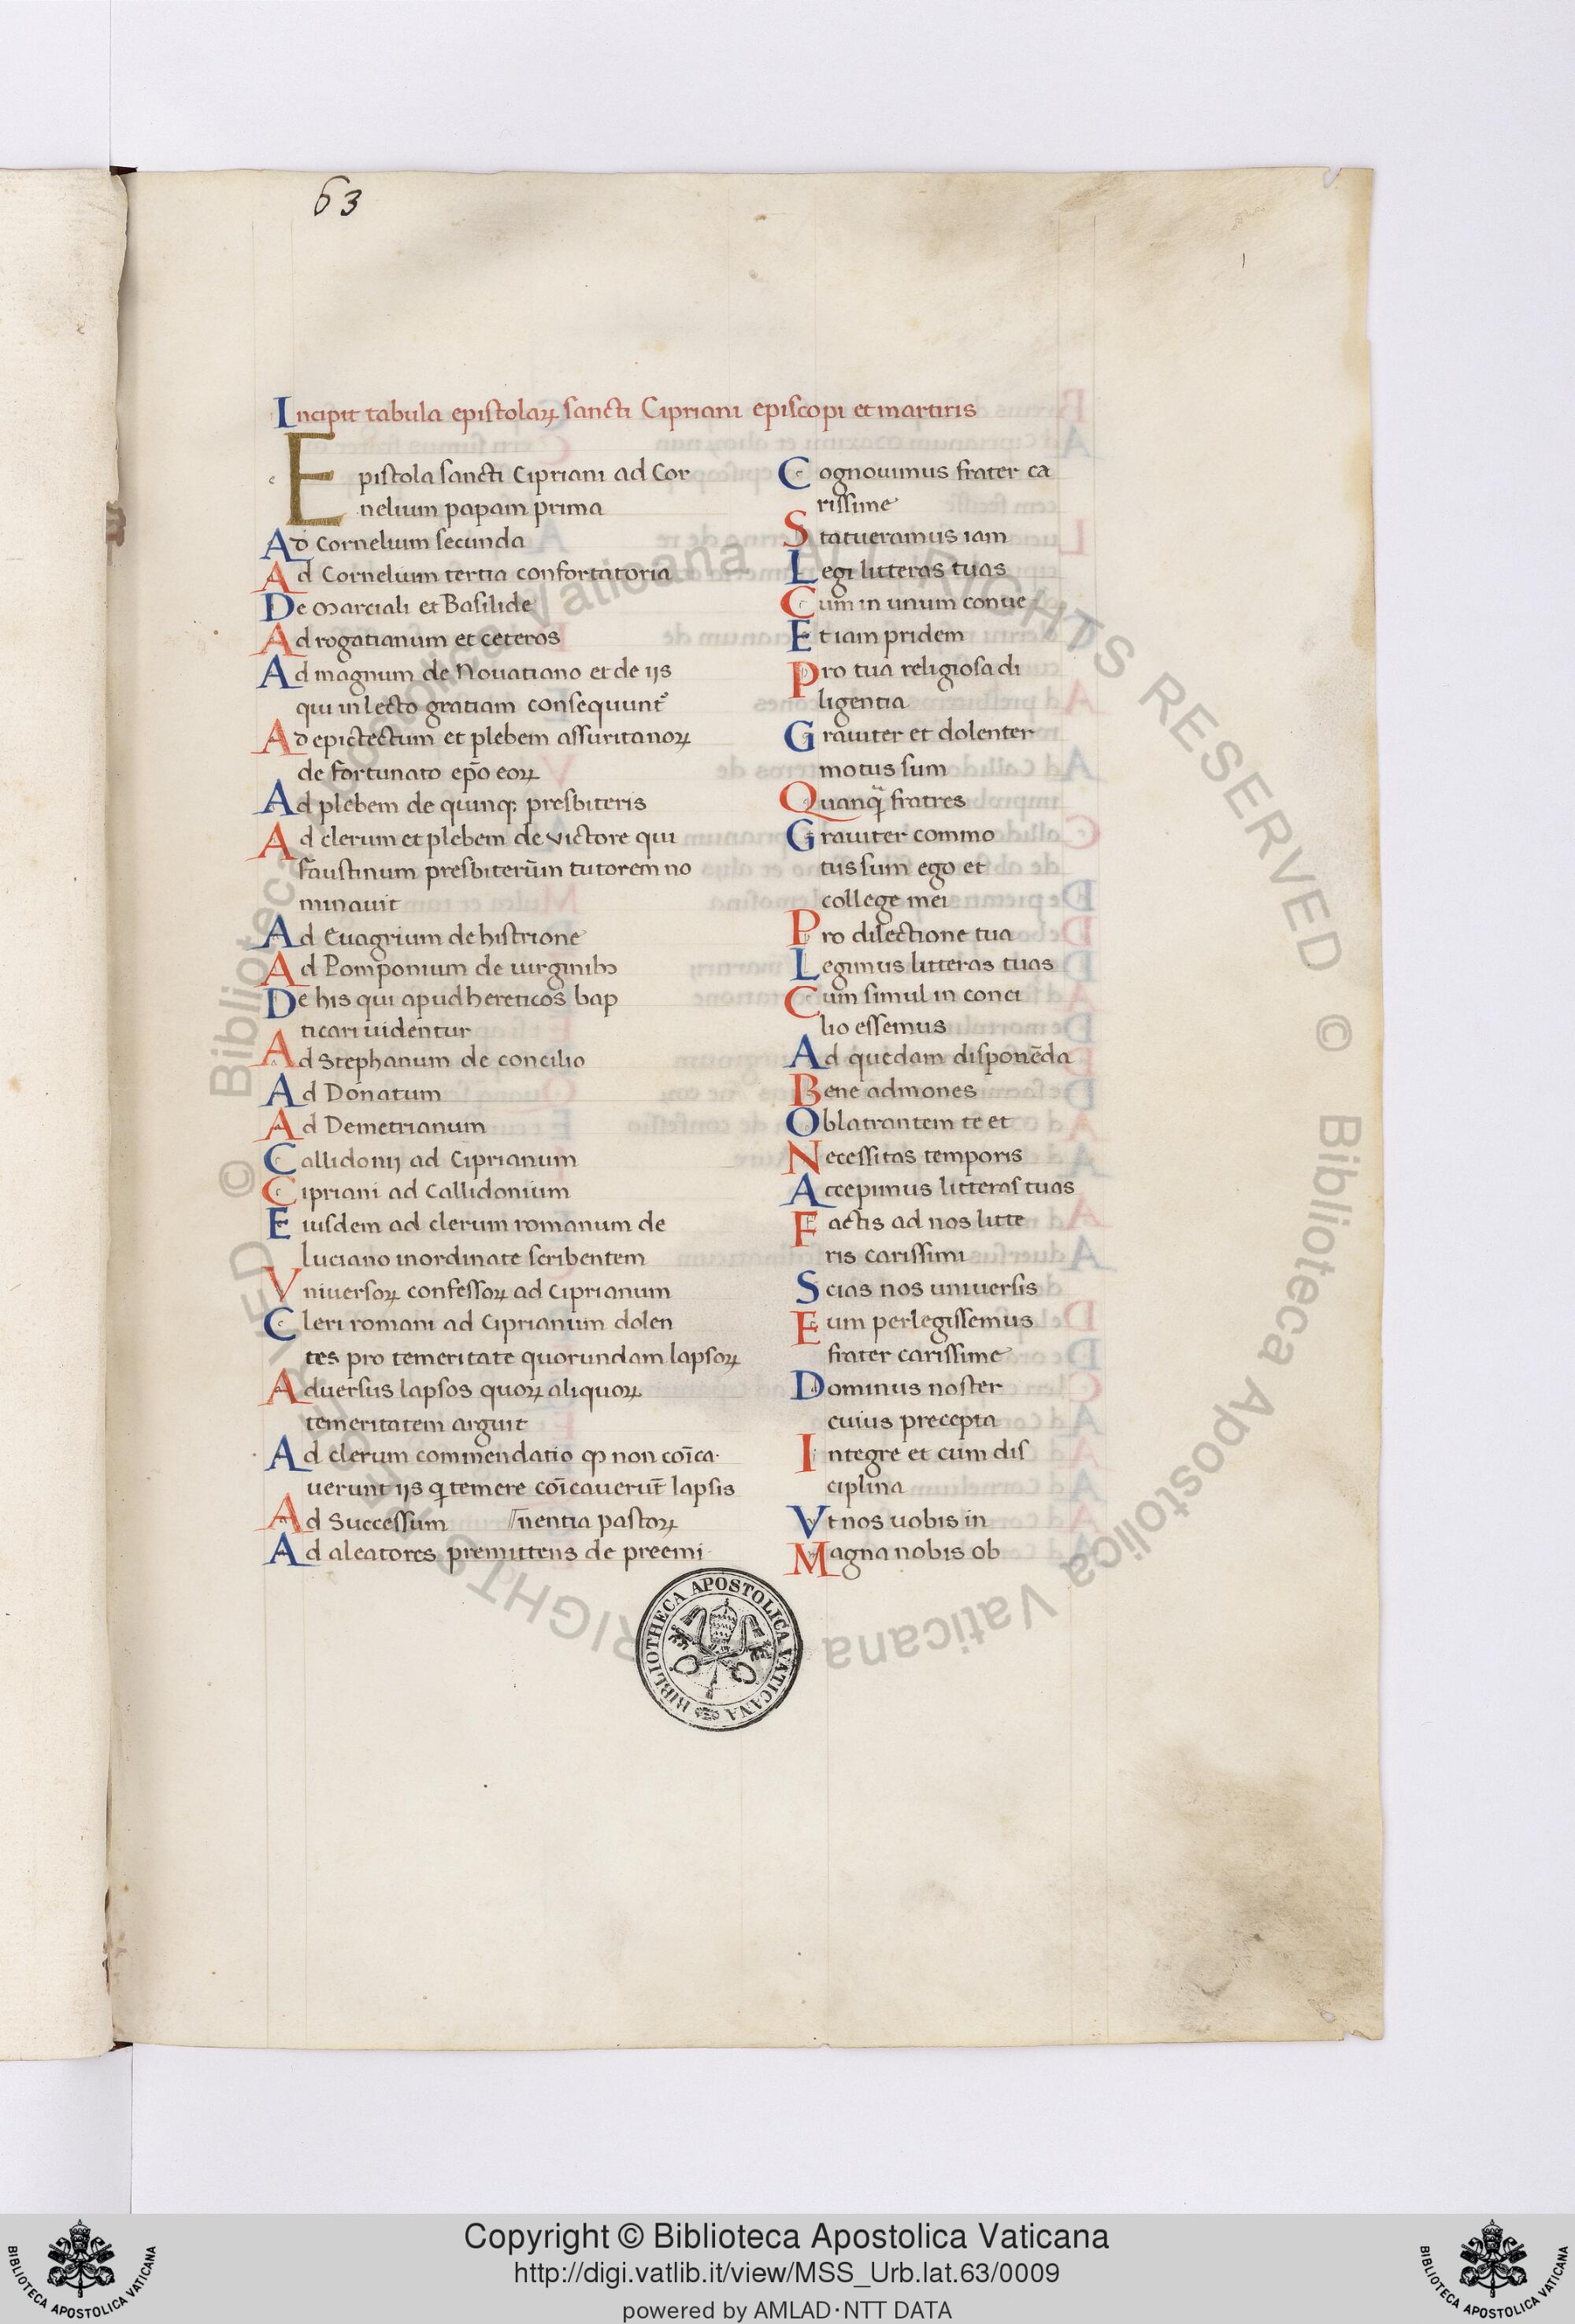 63
1
Incipit tabula epistolaꝝ sancti Cipriani episcopi et martiris
Epistola sancti Cipriani ad Cor
nelium papam prima
Ad Cornelium secunda
Ad Cornelium tertia confortatoria
De Marciali et Basilide
Ad rogatianum et ceteros
Ad magnum de Novatiano et de iis
qui in lecto gratiam consequunt᷒
Ad epictectum et plebem assuritanoꝝ
de fortunato ep̄o eoꝝ
Ad plebem de quinqꝫ presbiteris
Ad clerum et plebem de victore qui
faustinum presbiterum tutorem no
minauit
Ad Euagrium de histrione
Ad Pomponium de uirginibꝫ
De his qui apud hereticos bap
ticari uidentur
Ad Stephanum de concilio
Ad Donatum
Ad Demetrianum
Callidonij ad Ciprianum
Cipriani ad Callidonium
Eiusdem ad clerum romanum de
luciano inordinate scribentem
Vniuersoꝝ confessoꝝ ad Ciprianum
Cleri romani ad Ciprianum dolen
tes pro temeritate quorundam lapsoꝝ
Aduersus lapsos quoꝝ aliquoꝝ
temeritatem arguit
Ad clerum commendatio ꝙ non coīca
uerunt ijs q temere coīcauerūt lapsis
Ad Successum nentia pastoꝝ
Ad aleatores premittens de preemi
Cognouimus frater ca
rissime
Statueramus iam
Legi litteras tuas
Cum in unum conue
Et iam pridem
Pro tua religiosa di
ligentia
Grauiter et dolenter
motus sum
Quanq̃ fratres
Grauiter commo
tus sum ego et
college mei
Pro dilectione tua
Legimus litteras tuas
Cum simul in conci
lio essemus
Ad quedam disponēda
Bene admones
Oblatrantem te et
Necessitas temporis
Accepimus litteras tuas
Factis ad nos litte
ris carissimi
Scias nos uniuersis
Eum perlegissemus
frater carissime
Dominus noster
cuius precepta
Integre et cum dis
ciplina
Vt nos uobis in
Magna nobis ob
BIBLIOTHECA APOSTOLICA VATICANA
© Biblioteca Apostolica Vaticana ALL RIGHTS RESERVED © Biblioteca Apostolica Vaticana ALL RIGHTS RESERVED
BIBLIOTECA APOSTOLICA VATICANA
Copyright © Biblioteca Apostolica Vaticana
http://digi.vatlib.it/view/MSS_Urb.lat.63/0009
powered by AMLAD·NTT DATA
BIBLIOTECA APOSTOLICA VATICANA